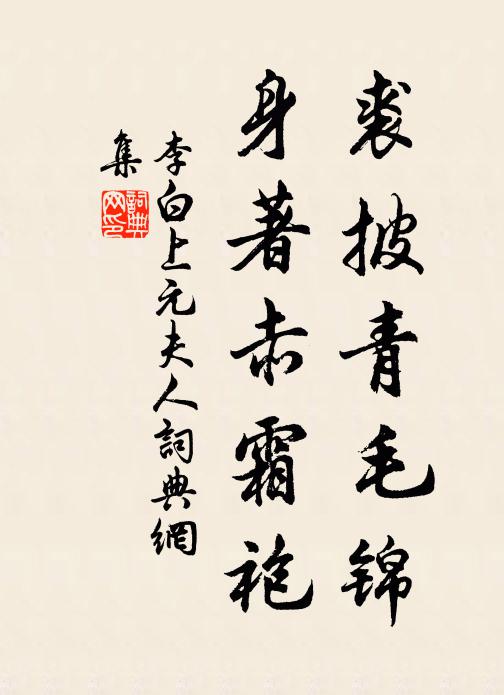 裘披青毛锦
身著赤霜袍
李白上元夫人詞典網
集
詞典网印